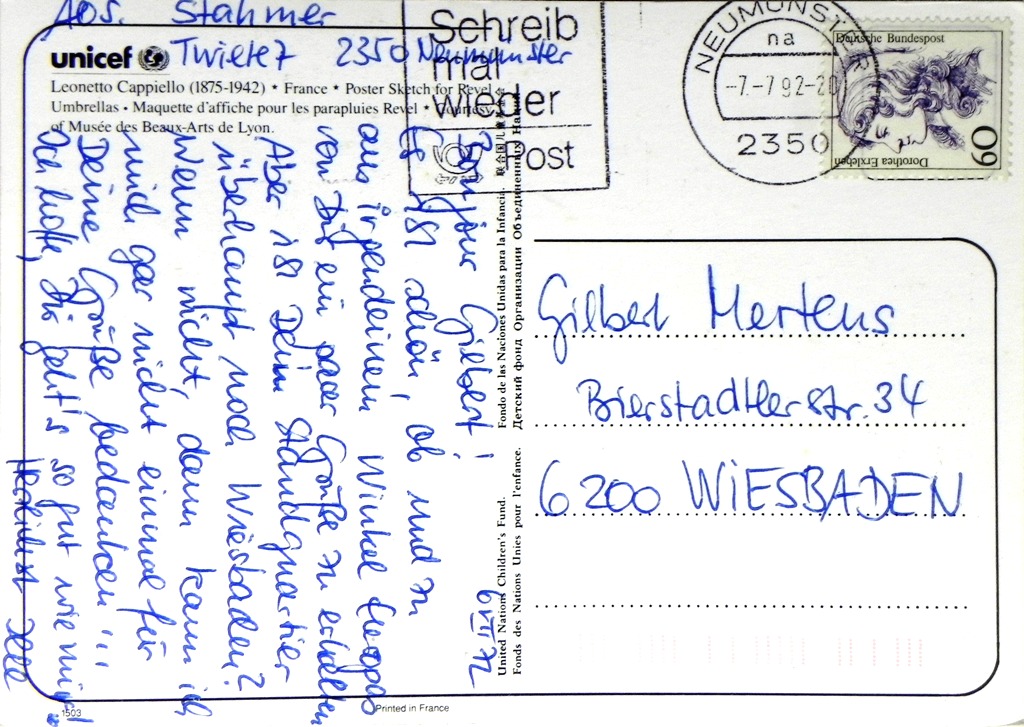 Abs. Stahmer
Twiete 7 2350 Neumünster
unicef
Leonetto Cappiello (1875-1942) • France • Poster Sketch for Revel
Umbrellas • Maquette d'affiche pour les parapluies Revel • Courtesy
of Musée des Beaux-Arts de Lyon.
Schreib
mal
wieder
Post
NEUMÜNSTER
na
-7.-7.92-20
2350
Deutsche Bundespost
60
Dorothea Erxleben
6 VII 92
Bonjour Gilbert!
Es ist schön, ab und zu
aus irgendeinem Winkel Europas
von Dir ein paar Grüße zu erhalten
Aber ist Dein Standquartier
überhaupt noch Wiesbaden?
Wenn nicht, dann kann ich
mich gar nicht einmal für
Deine Grüße bedanken!!!
Ich hoffe, Dir geht's so gut wie mir!
Herzlichst
United Nations Children's Fund. Fondo de las Naciones Unidas para la Infancia. 联合国儿童基金会
Fonds des Nations Unies pour l'enfance. Детский фонд Организации Объединенных Наций
Gilbert Mertens
Bierstadtlerstr. 34
6200 WIESBADEN
1503
Printed in France